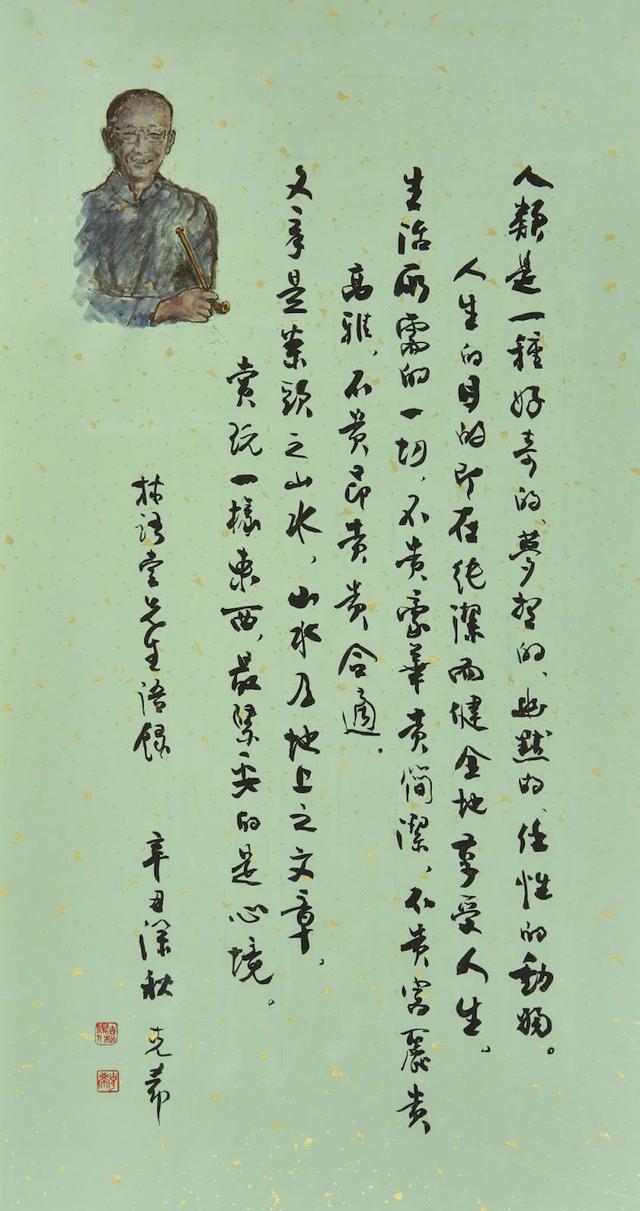 人類是一種好奇的、夢想的、幽默的、任性的動物。
人生的目的即在純潔而健全地享受人生、
生活所需的一切，不貴豪華貴簡潔，不貴富麗貴
高雅，不貴昂貴貴合適。
文章是案頭之山水，山水乃地上之文章，
賞玩一樣東西，最緊要的是心境。
林語堂先生語錄 辛丑深秋 克希